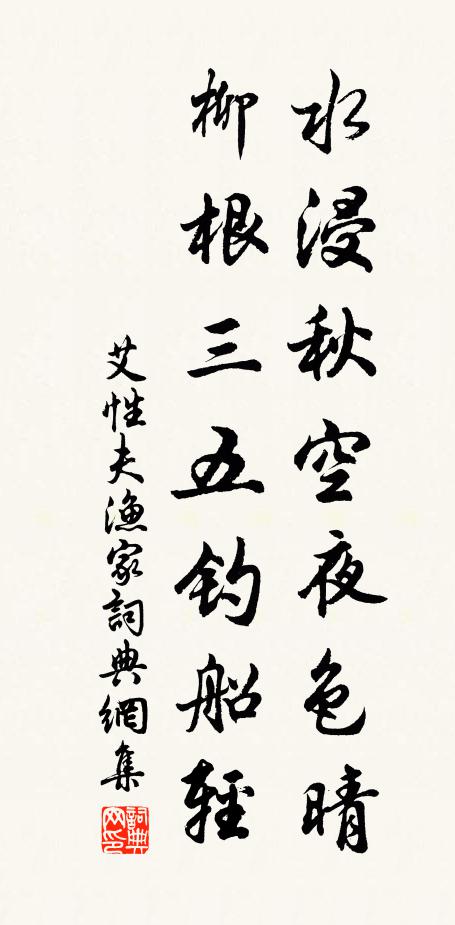 水浸秋空夜色晴
柳根三五钓船輕
艾性夫漁家詞典網集
詞典网印